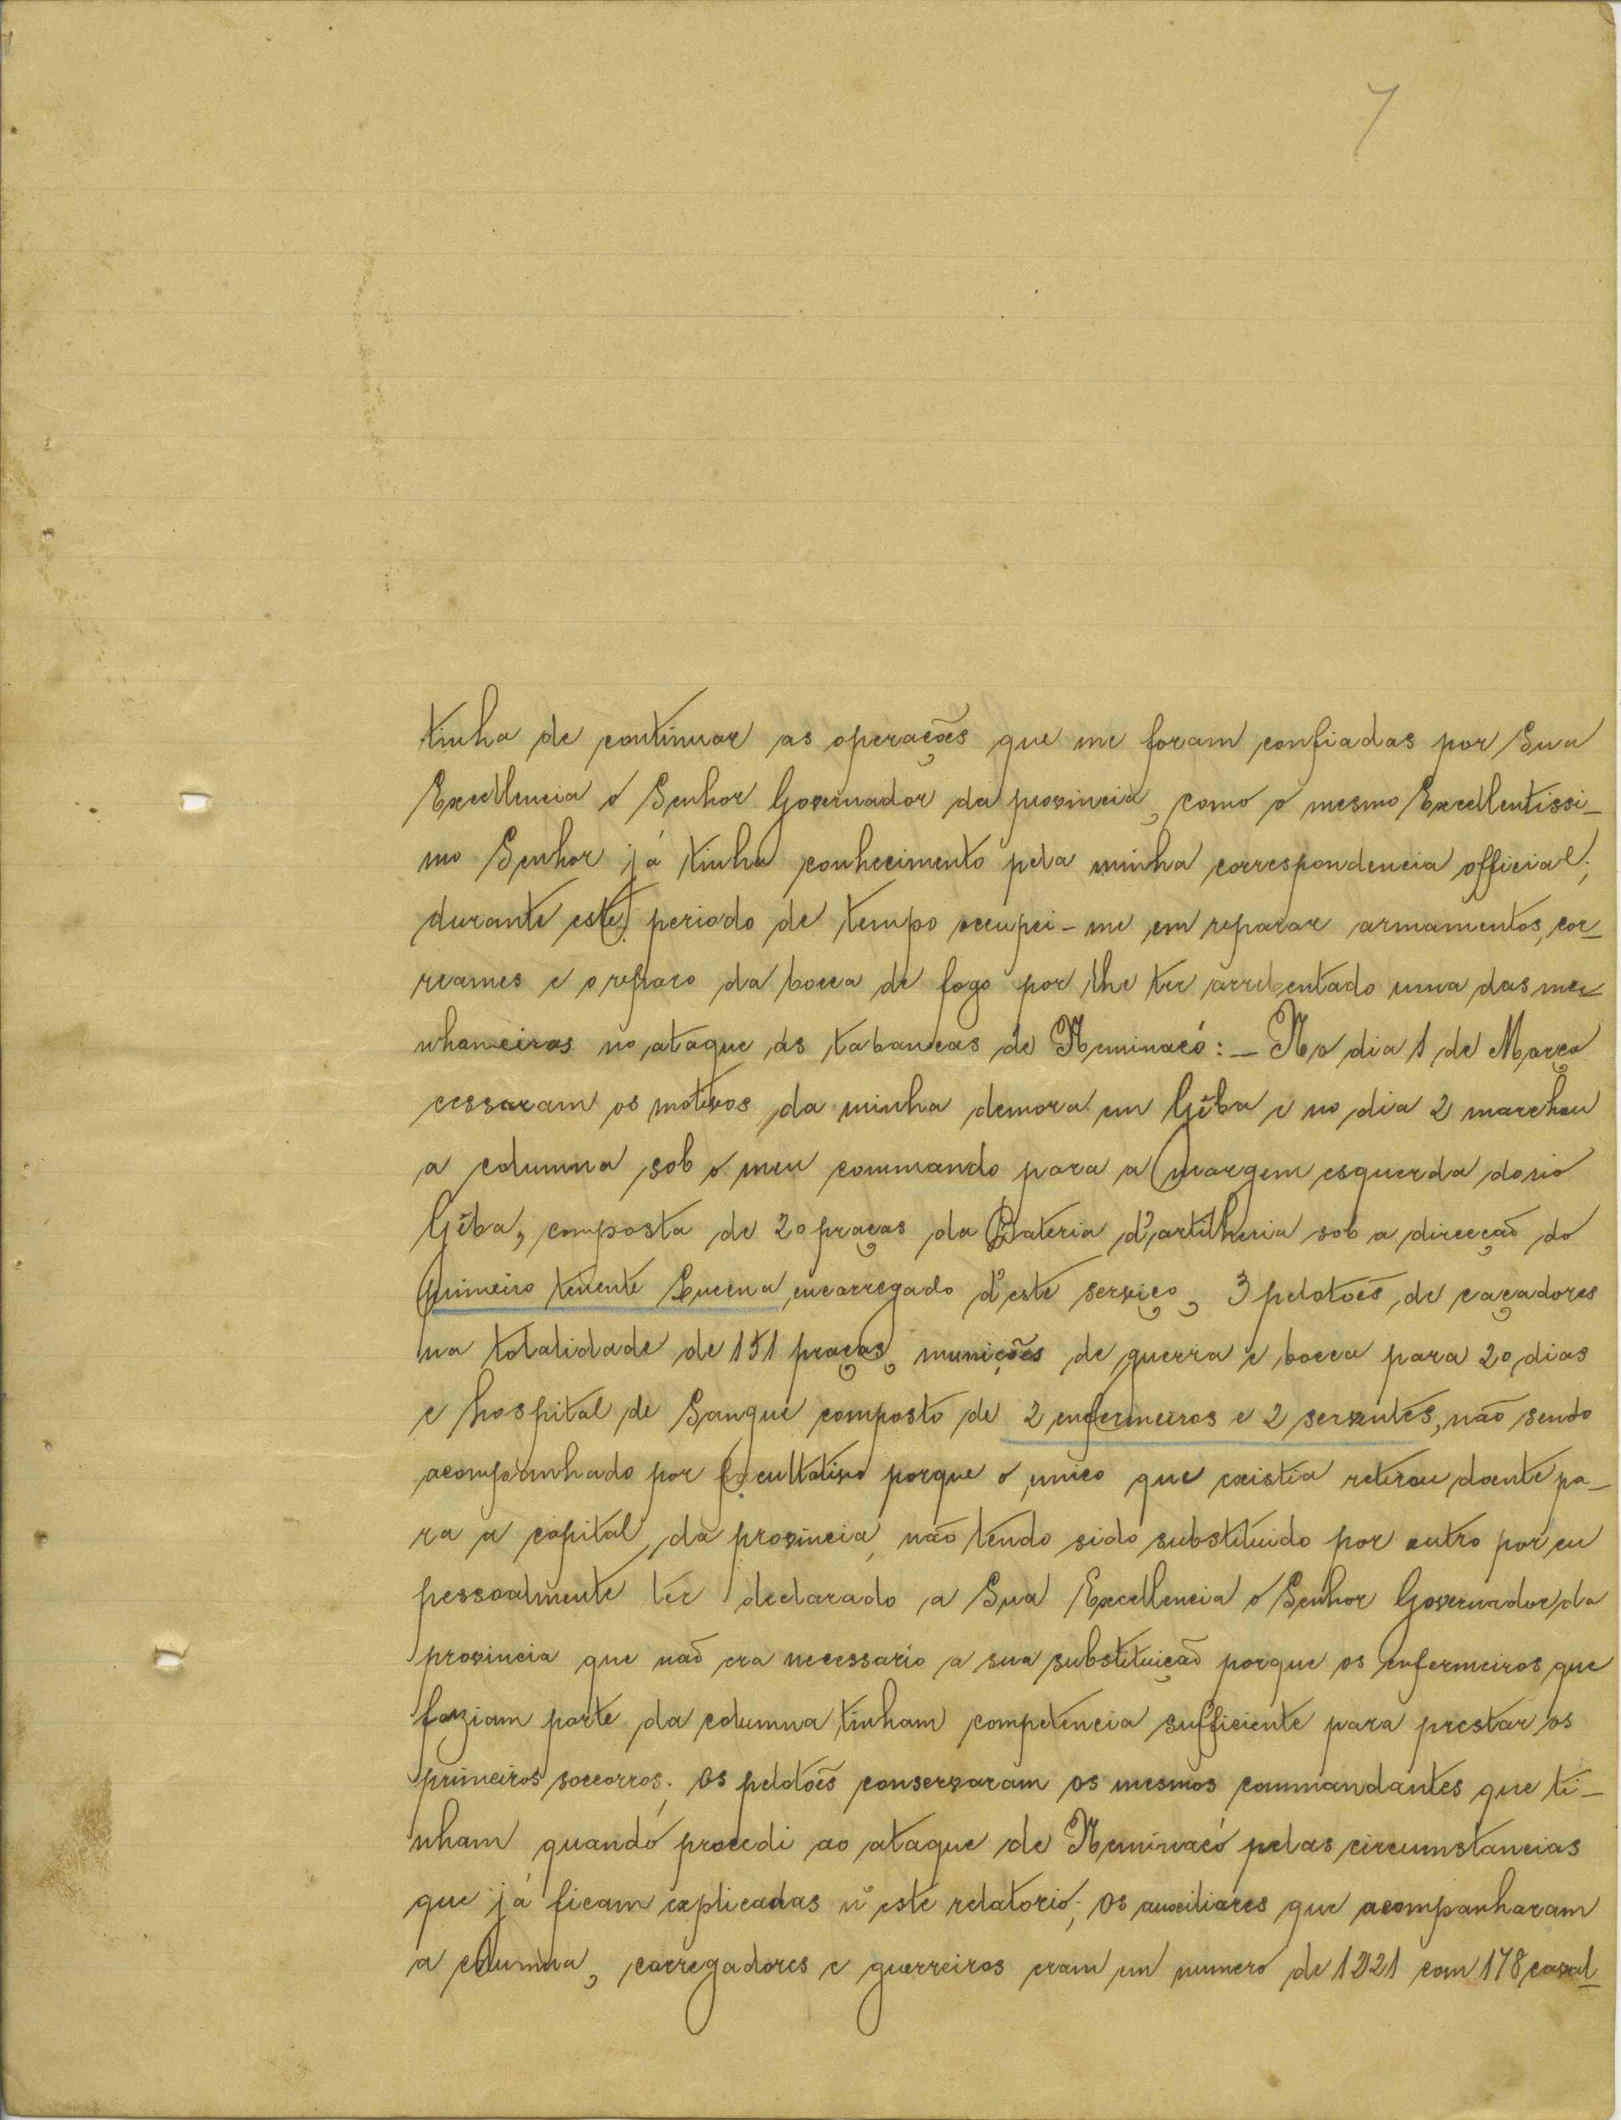 7
tinha de continuar as operações que me foram confiadas por Sua
Excellencia o Senhor Governador da provincia, como o mesmo Excellentissi-
mo Senhor já tinha conhecimento pela minha correspondencia official;
durante este periodo de tempo occupei-me em reparar armamentos, cor-
reames e o reparo da bocca de fogo por lhe ter arrebentado uma das
no ataque ás tabancas de Neminacó: - No dia 1 de Março
cessaram os motivos da minha demora em Gêba e no dia 2 marchou
a columna sob o meu commando para a margem esquerda do rio
Gêba, composta de 20 praças da Bateria d'artilheria sob a direcção do
primeiro tenente Lucena encarregado d'este serviço, 3 pelotoẽs de caçadores
na totalidade de 151 praças, munições de guerra e bocca para 20 dias
e hospital de Sangue composto de 2 enfermeiros e 2 serventes, não sendo
acompanhado por facultativo porque o unico que existia retirou doente pa-
ra a capital da provincia, não tendo sido substituido por outro por eu
pessoalmente ter declarado a Sua Excellencia o Senhor Governador da
provincia que naõ era necessario a sua substituição porque os enfermeiros que
faziam parte da columna tinham competencia sufficiente para prestar os
primeiros soccorros. Os pelotoẽs conservaram os mesmos commandantes que ti-
nham quando procedi ao ataque de Neminacó pelas circumstancias
que já ficam explicadas n'este relatorio; os auxiliares que acompanharam
a columna, carregadores e guerreiros eram em numero de com 178 caval-